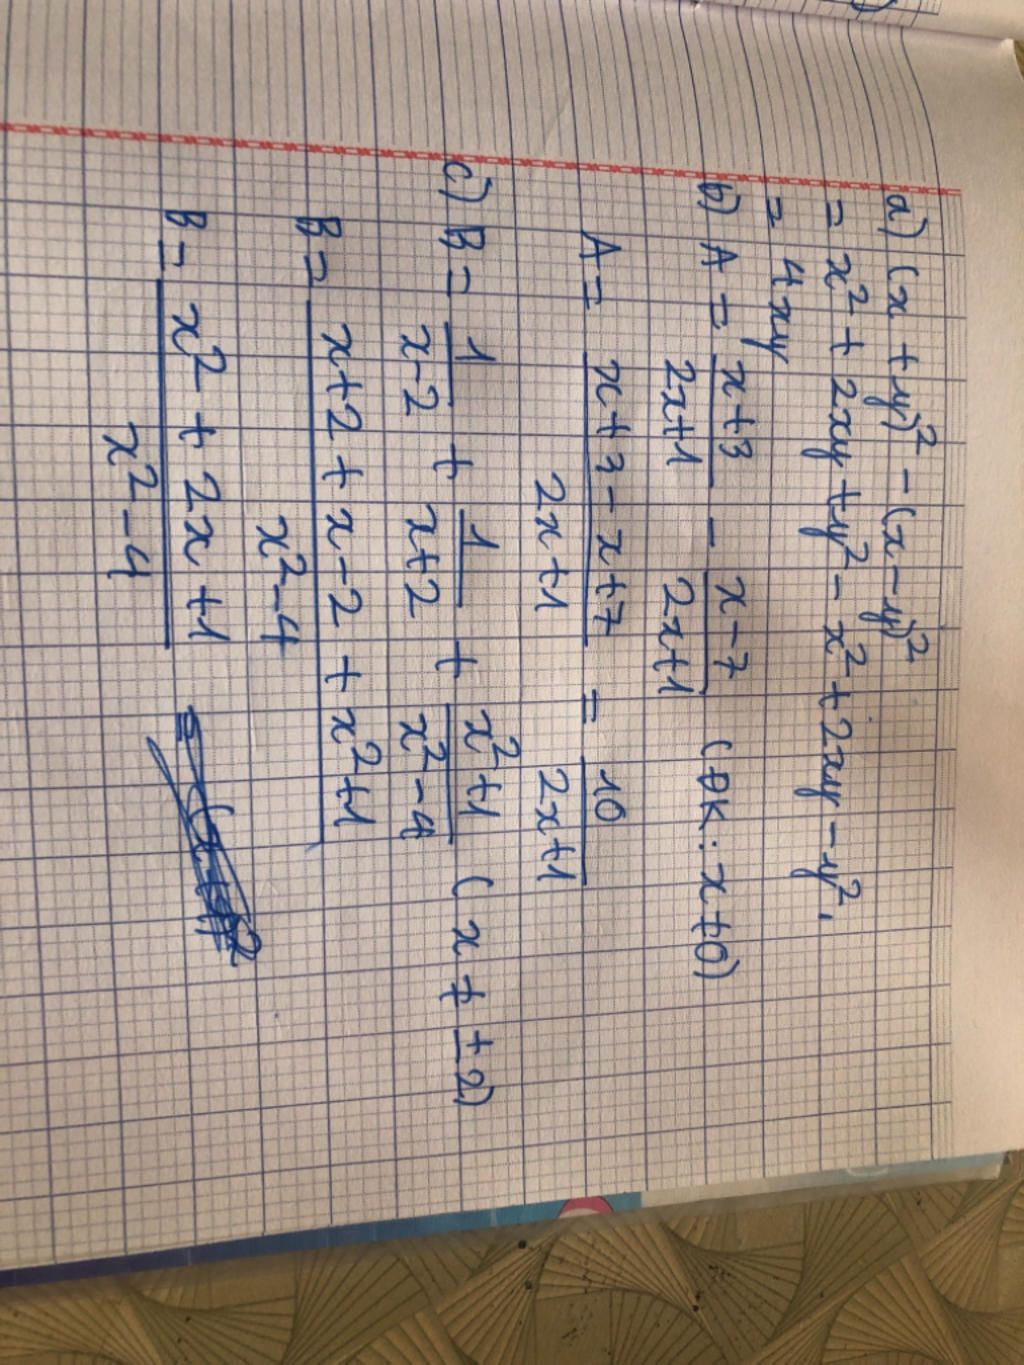 a) (x + y)² - (x - y)²
= x² + 2xy + y² - x² + 2xy - y².
= 4xy
b) A = \frac{x+3}{2x+1} - \frac{x-7}{2x+1} (ĐK: x ≠ 0)
A = \frac{x+3-x+7}{2x+1} = \frac{10}{2x+1}
c) B = \frac{1}{x-2} + \frac{1}{x+2} + \frac{x²+1}{x²-4} (x ≠ ±2)
B = \frac{x+2+x-2+x²+1}{x²-4}
B = \frac{x²+2x+1}{x²-4}